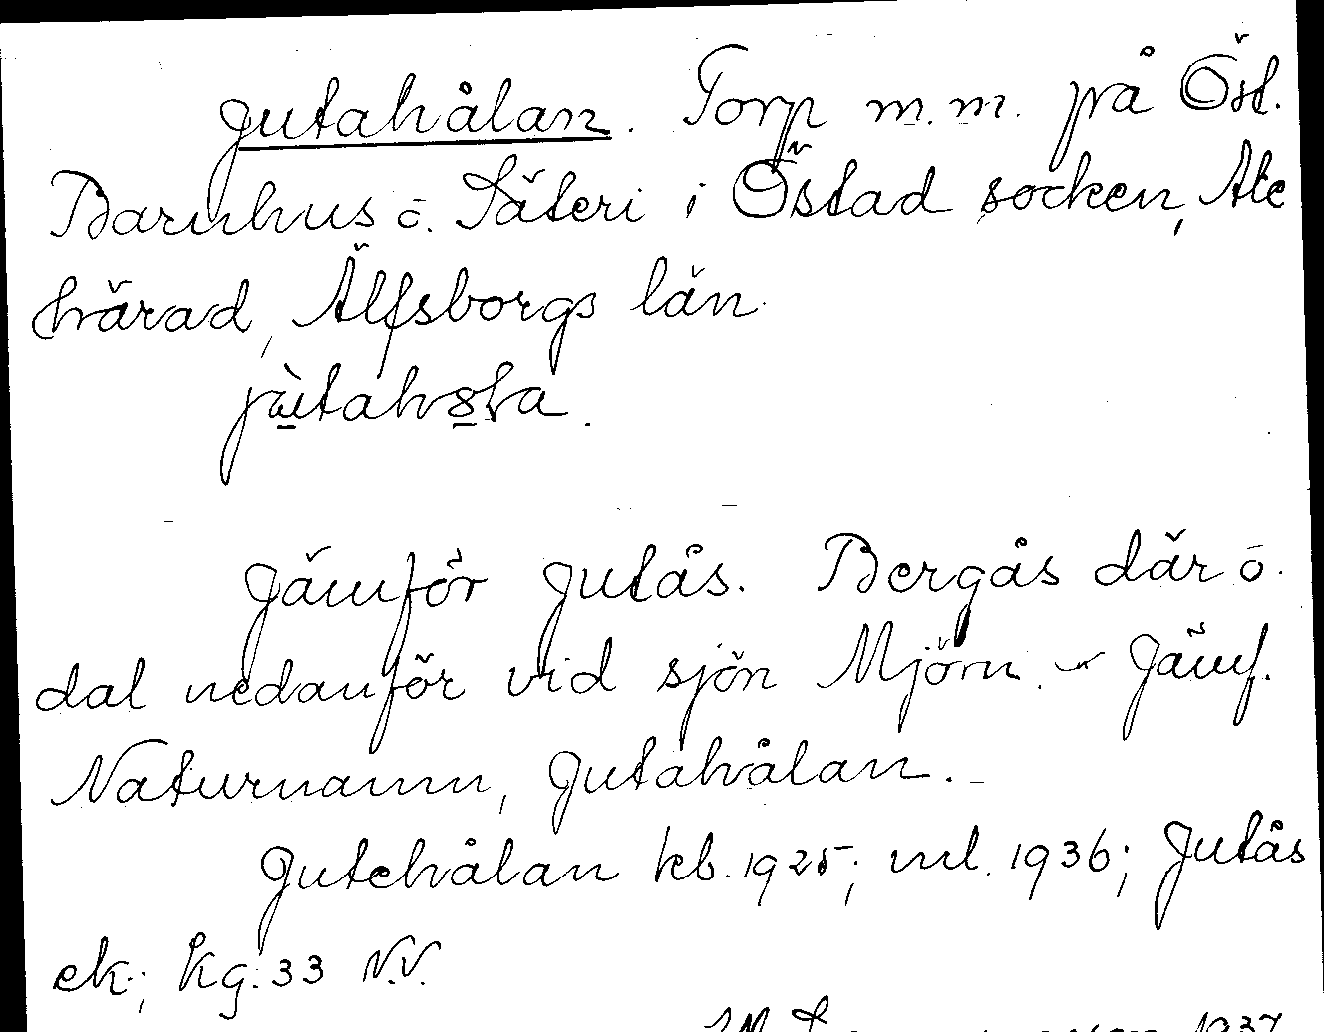 Jutahålan. Torp m.m. på Öst.
Barnhus o. Säteri i Östad socken, Ale
härad, Älfsborgs län.
Jämför Jutås. Bergås där o.
dal nedanför vid sjön Mjörn. - Jämf.
Naturnamn, Jutahålan. -
Jutehålan kb. 1925; ml. 1936; Jutås
ek.; kg. 33 N.V.
1937